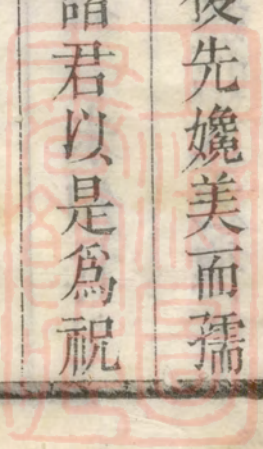 後先媲美而孺
君以是爲祝